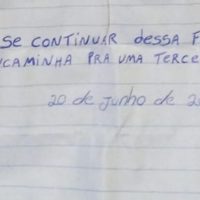 SE CONTINUAR DESSA F
CAMINHA PRA UMA TERCE
20 de Junho de 2